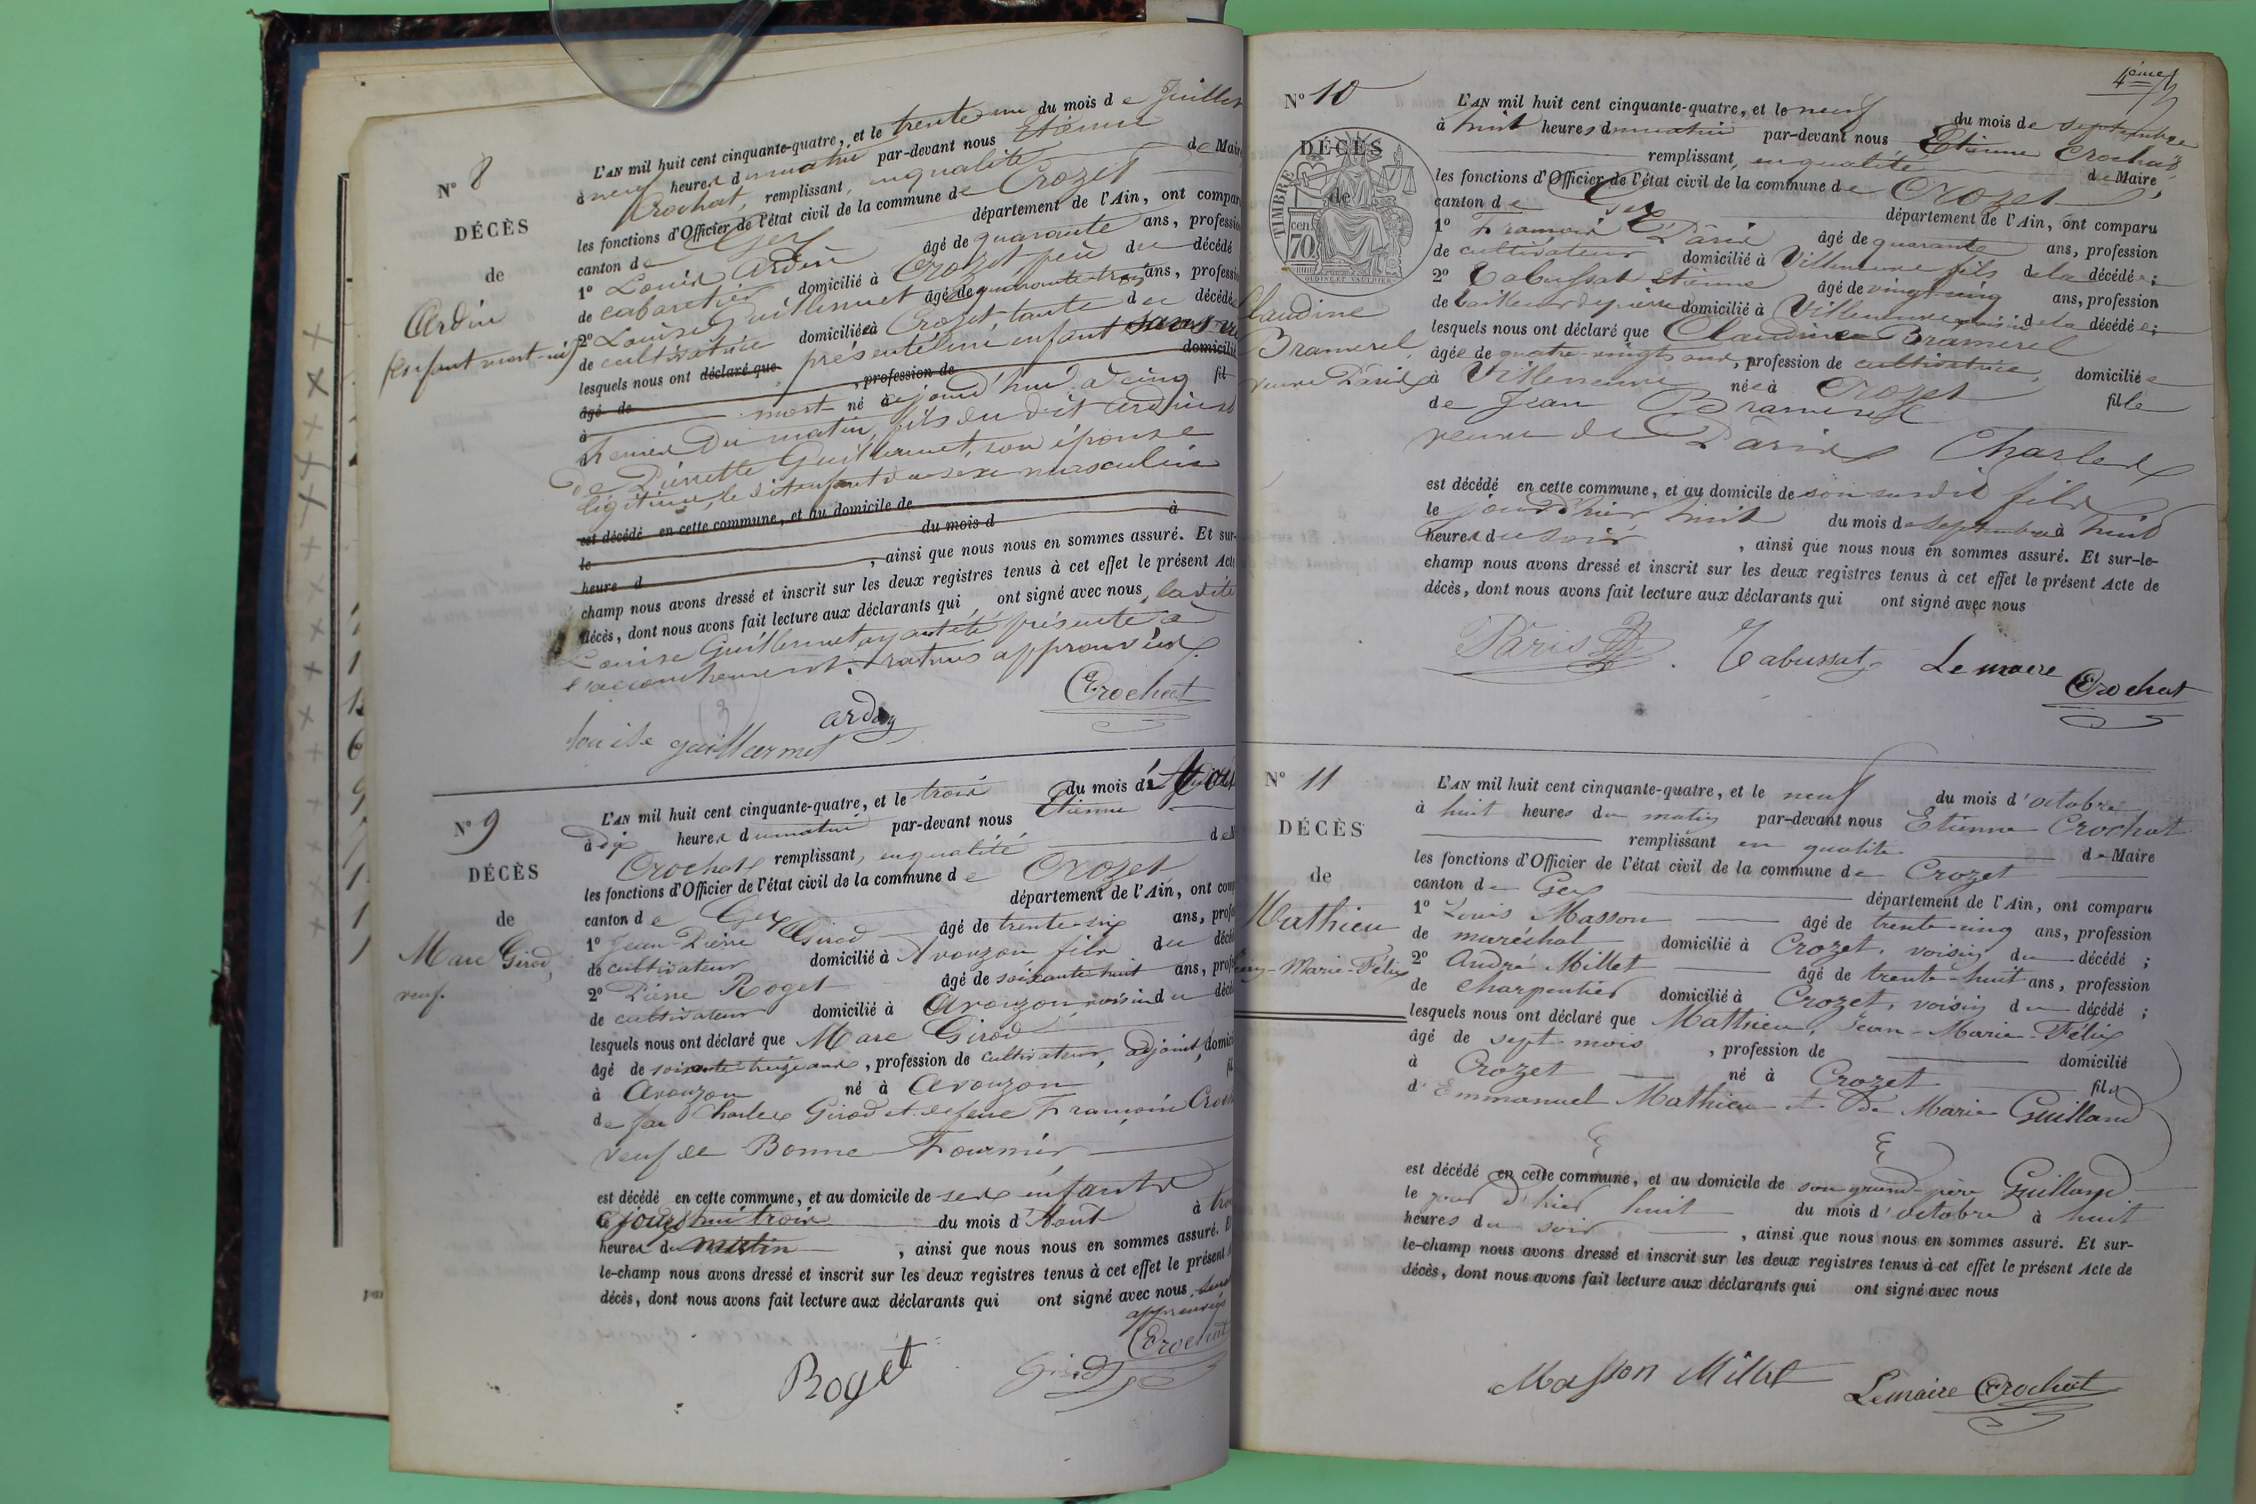 N° 8
DÉCÈS
de
Ardin
(enfant mort-né)
L'AN mil huit cent cinquante-quatre, et le trente un du mois de Juillet
à neuf heures du matin par-devant nous Etienne
Crochat, remplissant, en qualité de Maire
les fonctions d'Officier de l'état civil de la commune de Crozet
canton de Gex département de l'Ain, ont comparu
1° Louis Ardin âgé de quarante ans, profession
de cabaretier domicilié à Crozet, père du décédé
2° Louise Guillermet âgée de quarante trois ans, profession
de cultivatrice domiciliée à Crozet, tante du décédé
lesquels nous ont déclaré que présenté un enfant sans vie
âgé de , profession de domicilié
à mort né cejourd'hui à cinq fil
heures du matin, fils du dit Ardin et
de Pierrette Guillermet, son épouse
légitime, le dit enfant du sexe masculin
est décédé en cette commune, et au domicile de
le du mois d à
heure d , ainsi que nous nous en sommes assuré. Et sur-
champ nous avons dressé et inscrit sur les deux registres tenus à cet effet le présent Acte
décès, dont nous avons fait lecture aux déclarants qui ont signé avec nous, la dite
Louise Guillermet ayant été présente à
l'accouchement. ratures approuvées.
Crochat
ardin
Louise guillermet
N° 9
DÉCÈS
de
Marc Girod,
veuf.
L'AN mil huit cent cinquante-quatre, et le trois du mois d'
à dix heures du matin par-devant nous Etienne
Crochat remplissant, en qualité de
les fonctions d'Officier de l'état civil de la commune de Crozet
canton de Gex département de l'Ain, ont
1° Jean Pierre Girod âgé de trente-six ans,
de cultivateur domicilié à Avouzon fils du
2° Pierre Roget âgé de soixante huit ans,
de cultivateur domicilié à Avouzon, voisin du
lesquels nous ont déclaré que Marc Girod
âgé de soixante treize ans, profession de cultivateur, adjoint,
à Avouzon né à Avouzon fil
de feu Charles Girod et de feue Françoise
veuf de Bonne Fournier
est décédé en cette commune, et au domicile de ses enfants
cejourd'hui trois du mois d'Aout à
heures du matin , ainsi que nous nous en sommes assuré.
le-champ nous avons dressé et inscrit sur les deux registres tenus à cet effet le présent
décès, dont nous avons fait lecture aux déclarants qui ont signé avec nous
Crochat
Roget Girod
4ème
N° 10
DÉCÈS
de
TIMBRE
cen.
70
Claudine
Bramerel,
veuve Pâris
L'AN mil huit cent cinquante-quatre, et le neuf du mois de septembre
à huit heures du matin par-devant nous Etienne Crochat
remplissant, en qualité de Maire,
les fonctions d'Officier de l'état civil de la commune de Crozet
canton de Gex département de l'Ain, ont comparu
1° François Pâris âgé de quarante ans, profession
de cultivateur domicilié à Villeneuve fils de la décédée;
2° Tabussat Etienne âgé de vingt-cinq ans, profession
de tailleur de pierre domicilié à Villeneuve, voisin de la décédée;
lesquels nous ont déclaré que Claudine Bramerel
âgée de quatre-vingts ans, profession de cultivatrice, domiciliée
à Villeneuve née à Crozet fille
de Jean Bramerel
veuve de Pâris Charles
est décédé en cette commune, et au domicile de son susdit fils
le jour d'hier, huit du mois de septembre à huit
heures du soir , ainsi que nous nous en sommes assuré. Et sur-le-
champ nous avons dressé et inscrit sur les deux registres tenus à cet effet le présent Acte de
décès, dont nous avons fait lecture aux déclarants qui ont signé avec nous
Pâris Tabussat Le maire Crochat
N° 11
DÉCÈS
de
Mathieu
Jean-Marie-Félix
L'AN mil huit cent cinquante-quatre, et le neuf du mois d'octobre
à huit heures du matin par-devant nous Etienne Crochat
remplissant en qualité de Maire
les fonctions d'Officier de l'état civil de la commune de Crozet
canton de Gex département de l'Ain, ont comparu
1° Louis Masson âgé de trente-cinq ans, profession
de maréchal domicilié à Crozet, voisin du décédé ;
2° André Millet âgé de trente-huit ans, profession
de charpentier domicilié à Crozet, voisin du décédé ;
lesquels nous ont déclaré que Mathieu, Jean-Marie-Félix
âgé de sept mois , profession de domicilié
à Crozet né à Crozet fils
d'Emmanuel Mathieu et de Marie Guilland
est décédé en cette commune, et au domicile de son grand-père Guilland
le jour d'hier huit du mois d'octobre à huit
heures du soir , ainsi que nous nous en sommes assuré. Et sur-
le-champ nous avons dressé et inscrit sur les deux registres tenus à cet effet le présent Acte de
décès, dont nous avons fait lecture aux déclarants qui ont signé avec nous
Masson Millet Le maire Crochat